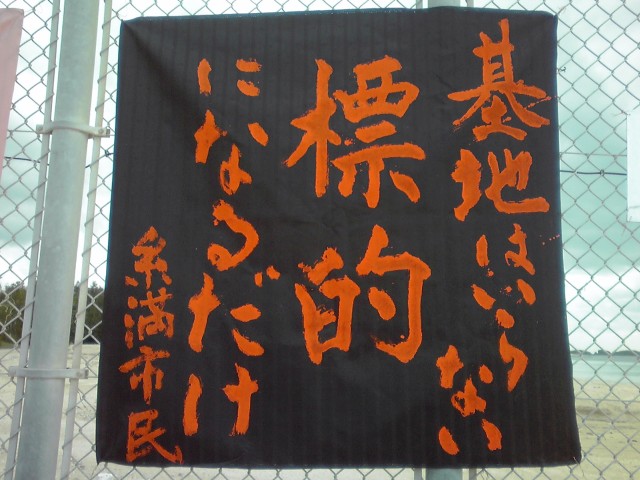 基地はいらない
標的
になるだけ
糸満市民